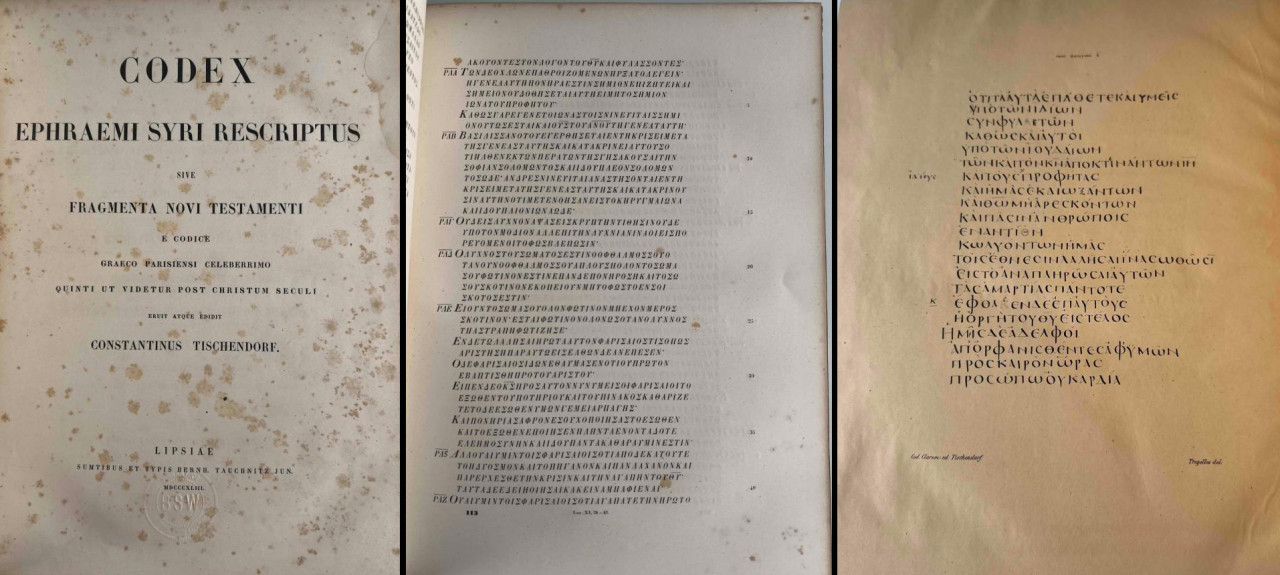 CODEX
EPHRAEMI SYRI RESCRIPTUS
SIVE
FRAGMENTA NOVI TESTAMENTI
E CODICE
GRAECO PARISIENSI CELEBERRIMO
QUINTI UT VIDETUR POST CHRISTUM SECULI
ERUIT ATQUE EDIDIT
CONSTANTINUS TISCHENDORF.
LIPSIAE
SUMTIBUS ET TYPIS BERNH. TAUCHNITZ JUN.
MDCCCXLIII.
BSW
ΑΚΟΥΟΝΤΕΣΤΟΝΛΟΓΟΝΤΟΥΘΥΚΑΙΦΥΛΑΣΣΟΝΤΕΣ·
ΡΛΑ ΤΩΝΔΕΟΧΛΩΝΕΠΑΘΡΟΙΖΟΜΕΝΩΝΗΡΞΑΤΟΛΕΓΕΙΝ·
ΗΓΕΝΕΑΑΥΤΗΠΟΝΗΡΑΕΣΤΙΝΣΗΜΙΟΝΕΠΙΖΗΤΕΙΚΑΙ
ΣΗΜΕΙΟΝΟΥΔΟΘΗΣΕΤΑΙΑΥΤΗΕΙΜΗΤΟΣΗΜΙΟΝ
ΙΩΝΑΤΟΥΠΡΟΦΗΤΟΥ· 5
ΚΑΘΩΣΓΑΡΕΓΕΝΕΤΟΙΩΝΑΣΤΟΙΣΝΙΝΕΥΙΤΑΙΣΣΗΜΙ
ΟΝΟΥΤΩΣΕΣΤΑΙΚΑΙΟΥΣΤΟΥΑΝΟΥΤΗΓΕΝΕΑΤΑΥΤΗ·
ΡΛΒ ΒΑΣΙΛΙΣΣΑΝΟΤΟΥΕΓΕΡΘΗΣΕΤΑΙΕΝΤΗΚΡΙΣΕΙΜΕΤΑ
ΤΗΣΓΕΝΕΑΣΤΑΥΤΗΣΚΑΙΚΑΤΑΚΡΙΝΕΙΑΥΤΟΥΣΟ
ΤΙΗΛΘΕΝΕΚΤΩΝΠΕΡΑΤΩΝΤΗΣΓΗΣΑΚΟΥΣΑΙΤΗΝ 10
ΣΟΦΙΑΝΣΟΛΟΜΩΝΤΟΣΚΑΙΙΔΟΥΠΛΕΟΝΣΟΛΟΜΩΝ
ΤΟΣΩΔΕ·ΑΝΔΡΕΣΝΙΝΕΥΙΤΑΙΑΝΑΣΤΗΣΟΝΤΑΙΕΝΤΗ
ΚΡΙΣΕΙΜΕΤΑΤΗΣΓΕΝΕΑΣΤΑΥΤΗΣΚΑΙΚΑΤΑΚΡΙΝΟΥ
ΣΙΝΑΥΤΗΝΟΤΙΜΕΤΕΝΟΗΣΑΝΕΙΣΤΟΚΗΡΥΓΜΑΙΩΝΑ
ΚΑΙΙΔΟΥΠΛΙΟΝΙΩΝΑΩΔΕ· 15
ΡΛΓ ΟΥΔΕΙΣΛΥΧΝΟΝΑΨΑΣΕΙΣΚΡΥΠΤΗΝΤΙΘΗΣΙΝΟΥΔΕ
ΥΠΟΤΟΝΜΟΔΙΟΝΑΛΛΕΠΙΤΗΝΛΥΧΝΙΑΝΙΝΑΟΙΕΙΣΠΟ
ΡΕΥΟΜΕΝΟΙΤΟΦΩΣΒΛΕΠΩΣΙΝ·
ΡΛΔ ΟΛΥΧΝΟΣΤΟΥΣΩΜΑΤΟΣΕΣΤΙΝΟΟΦΘΑΛΜΟΣΣΟΥΟ
ΤΑΝΟΥΝΟΟΦΘΑΛΜΟΣΣΟΥΑΠΛΟΥΣΗΟΛΟΝΤΟΣΩΜΑ 20
ΣΟΥΦΩΤΙΝΟΝΕΣΤΙΝΕΠΑΝΔΕΠΟΝΗΡΟΣΗΚΑΙΤΟΣΩ
ΣΟΥΣΚΟΤΙΝΟΝΣΚΟΠΕΙΟΥΝΜΗΤΟΦΩΣΤΟΕΝΣΟΙ
ΣΚΟΤΟΣΕΣΤΙΝ·
ΡΛΕ ΕΙΟΥΝΤΟΣΩΜΑΣΟΥΟΛΟΝΦΩΤΙΝΟΝΜΗΕΧΟΝΜΕΡΟΣ
ΣΚΟΤΙΝΟΝ·ΕΣΤΑΙΦΩΤΙΝΟΝΟΛΟΝΩΣΟΤΑΝΟΛΥΧΝΟΣ 25
ΤΗΑΣΤΡΑΠΗΦΩΤΙΖΗΣΕ·
ΕΝΔΕΤΩΛΑΛΗΣΑΙΗΡΩΤΑΑΥΤΟΝΦΑΡΙΣΑΙΟΣΤΙΣΟΠΩΣ
ΑΡΙΣΤΗΣΗΠΑΡΑΥΤΩΕΙΣΕΛΘΩΝΔΕΑΝΕΠΕΣΕΝ·
ΟΔΕΦΑΡΙΣΑΙΟΣΙΔΩΝΕΘΑΥΜΑΣΕΝΟΤΙΟΥΠΡΩΤΟΝ
ΕΒΑΠΤΙΣΘΗΠΡΟΤΟΥΑΡΙΣΤΟΥ· 30
ΕΙΠΕΝΔΕΟΚΣΠΡΟΣΑΥΤΟΝΝΥΝΥΜΕΙΣΟΙΦΑΡΙΣΑΙΟΙΤΟ
ΕΞΩΘΕΝΤΟΥΠΟΤΗΡΙΟΥΚΑΙΤΟΥΠΙΝΑΚΟΣΚΑΘΑΡΙΖΕ
ΤΕΤΟΔΕΕΣΩΘΕΝΥΜΩΝΓΕΜΕΙΑΡΠΑΓΗΣ·
ΚΑΙΠΟΝΗΡΙΑΣΑΦΡΟΝΕΣΟΥΧΟΠΟΙΗΣΑΣΤΟΕΣΩΘΕΝ
ΚΑΙΤΟΕΞΩΘΕΝΕΠΟΙΗΣΕΝΠΛΗΝΤΑΕΝΟΝΤΑΔΟΤΕ 35
ΕΛΕΗΜΟΣΥΝΗΝΚΑΙΙΔΟΥΠΑΝΤΑΚΑΘΑΡΑΥΜΙΝΕΣΤΙΝ·
ΡΛϚ ΑΛΛΟΥΑΙΥΜΙΝΤΟΙΣΦΑΡΙΣΑΙΟΙΣΟΤΙΑΠΟΔΕΚΑΤΟΥΤΕ
ΤΟΗΔΥΟΣΜΟΝΚΑΙΤΟΠΗΓΑΝΟΝΚΑΙΠΑΝΛΑΧΑΝΟΝΚΑΙ
ΠΑΡΕΡΧΕΣΘΕΤΗΝΚΡΙΣΙΝΚΑΙΤΗΝΑΓΑΠΗΝΤΟΥΘΥ·
ΤΑΥΤΑΔΕΕΔΕΙΠΟΙΗΣΑΙΚΑΚΕΙΝΑΜΗΑΦΙΕΝΑΙ 40
ΡΛΖ ΟΥΑΙΥΜΙΝΤΟΙΣΦΑΡΙΣΑΙΟΙΣΟΤΙΑΓΑΠΑΤΕΤΗΝΠΡΩΤΟ
113 Luc. XI, 28–43.
ΟΤΙΤΑΑΥΤΑΕΠΑΘΕΤΕΚΑΙΥΜΕΙΣ
ΥΠΟΤΩΝΙΔΙΩΝ
ΣΥΜΦΥΛΕΤΩΝ
ΚΑΘΩΣΚΑΙΑΥΤΟΙ
ΥΠΟΤΩΝΙΟΥΔΑΙΩΝ
ΤΩΝΚΑΙΤΟΝΚΝΑΠΟΚΤΙΝΑΝΤΩΝΙΗΝ
ΚΑΙΤΟΥΣΠΡΟΦΗΤΑΣ
ΚΑΙΗΜΑΣΕΚΔΙΩΞΑΝΤΩΝ
ΚΑΙΘΩΜΗΑΡΕΣΚΟΝΤΩΝ
ΚΑΙΠΑΣΙΝΑΝΘΡΩΠΟΙΣ
ΕΝΑΝΤΙΩΝ
ΚΩΛΥΟΝΤΩΝΗΜΑΣ
ΤΟΙΣΕΘΝΕΣΙΝΛΑΛΗΣΑΙΙΝΑΣΩΘΩΣΙ
ΕΙΣΤΟΑΝΑΠΛΗΡΩΣΑΙΑΥΤΩΝ
ΤΑΣΑΜΑΡΤΙΑΣΠΑΝΤΟΤΕ
ΕΦΘΑΣΕΝΔΕΕΠΑΥΤΟΥΣ
ΗΟΡΓΗΤΟΥΘΥΕΙΣΤΕΛΟΣ
ΗΜΙΣΔΕΑΔΕΛΦΟΙ
ΑΠΟΡΦΑΝΙΣΘΕΝΤΕΣΑΦΥΜΩΝ
ΠΡΟΣΚΑΙΡΟΝΩΡΑΣ
ΠΡΟΣΩΠΩΟΥΚΑΡΔΙΑ
Cod. Clarom. ed. Tischendorf
Tregelles del.